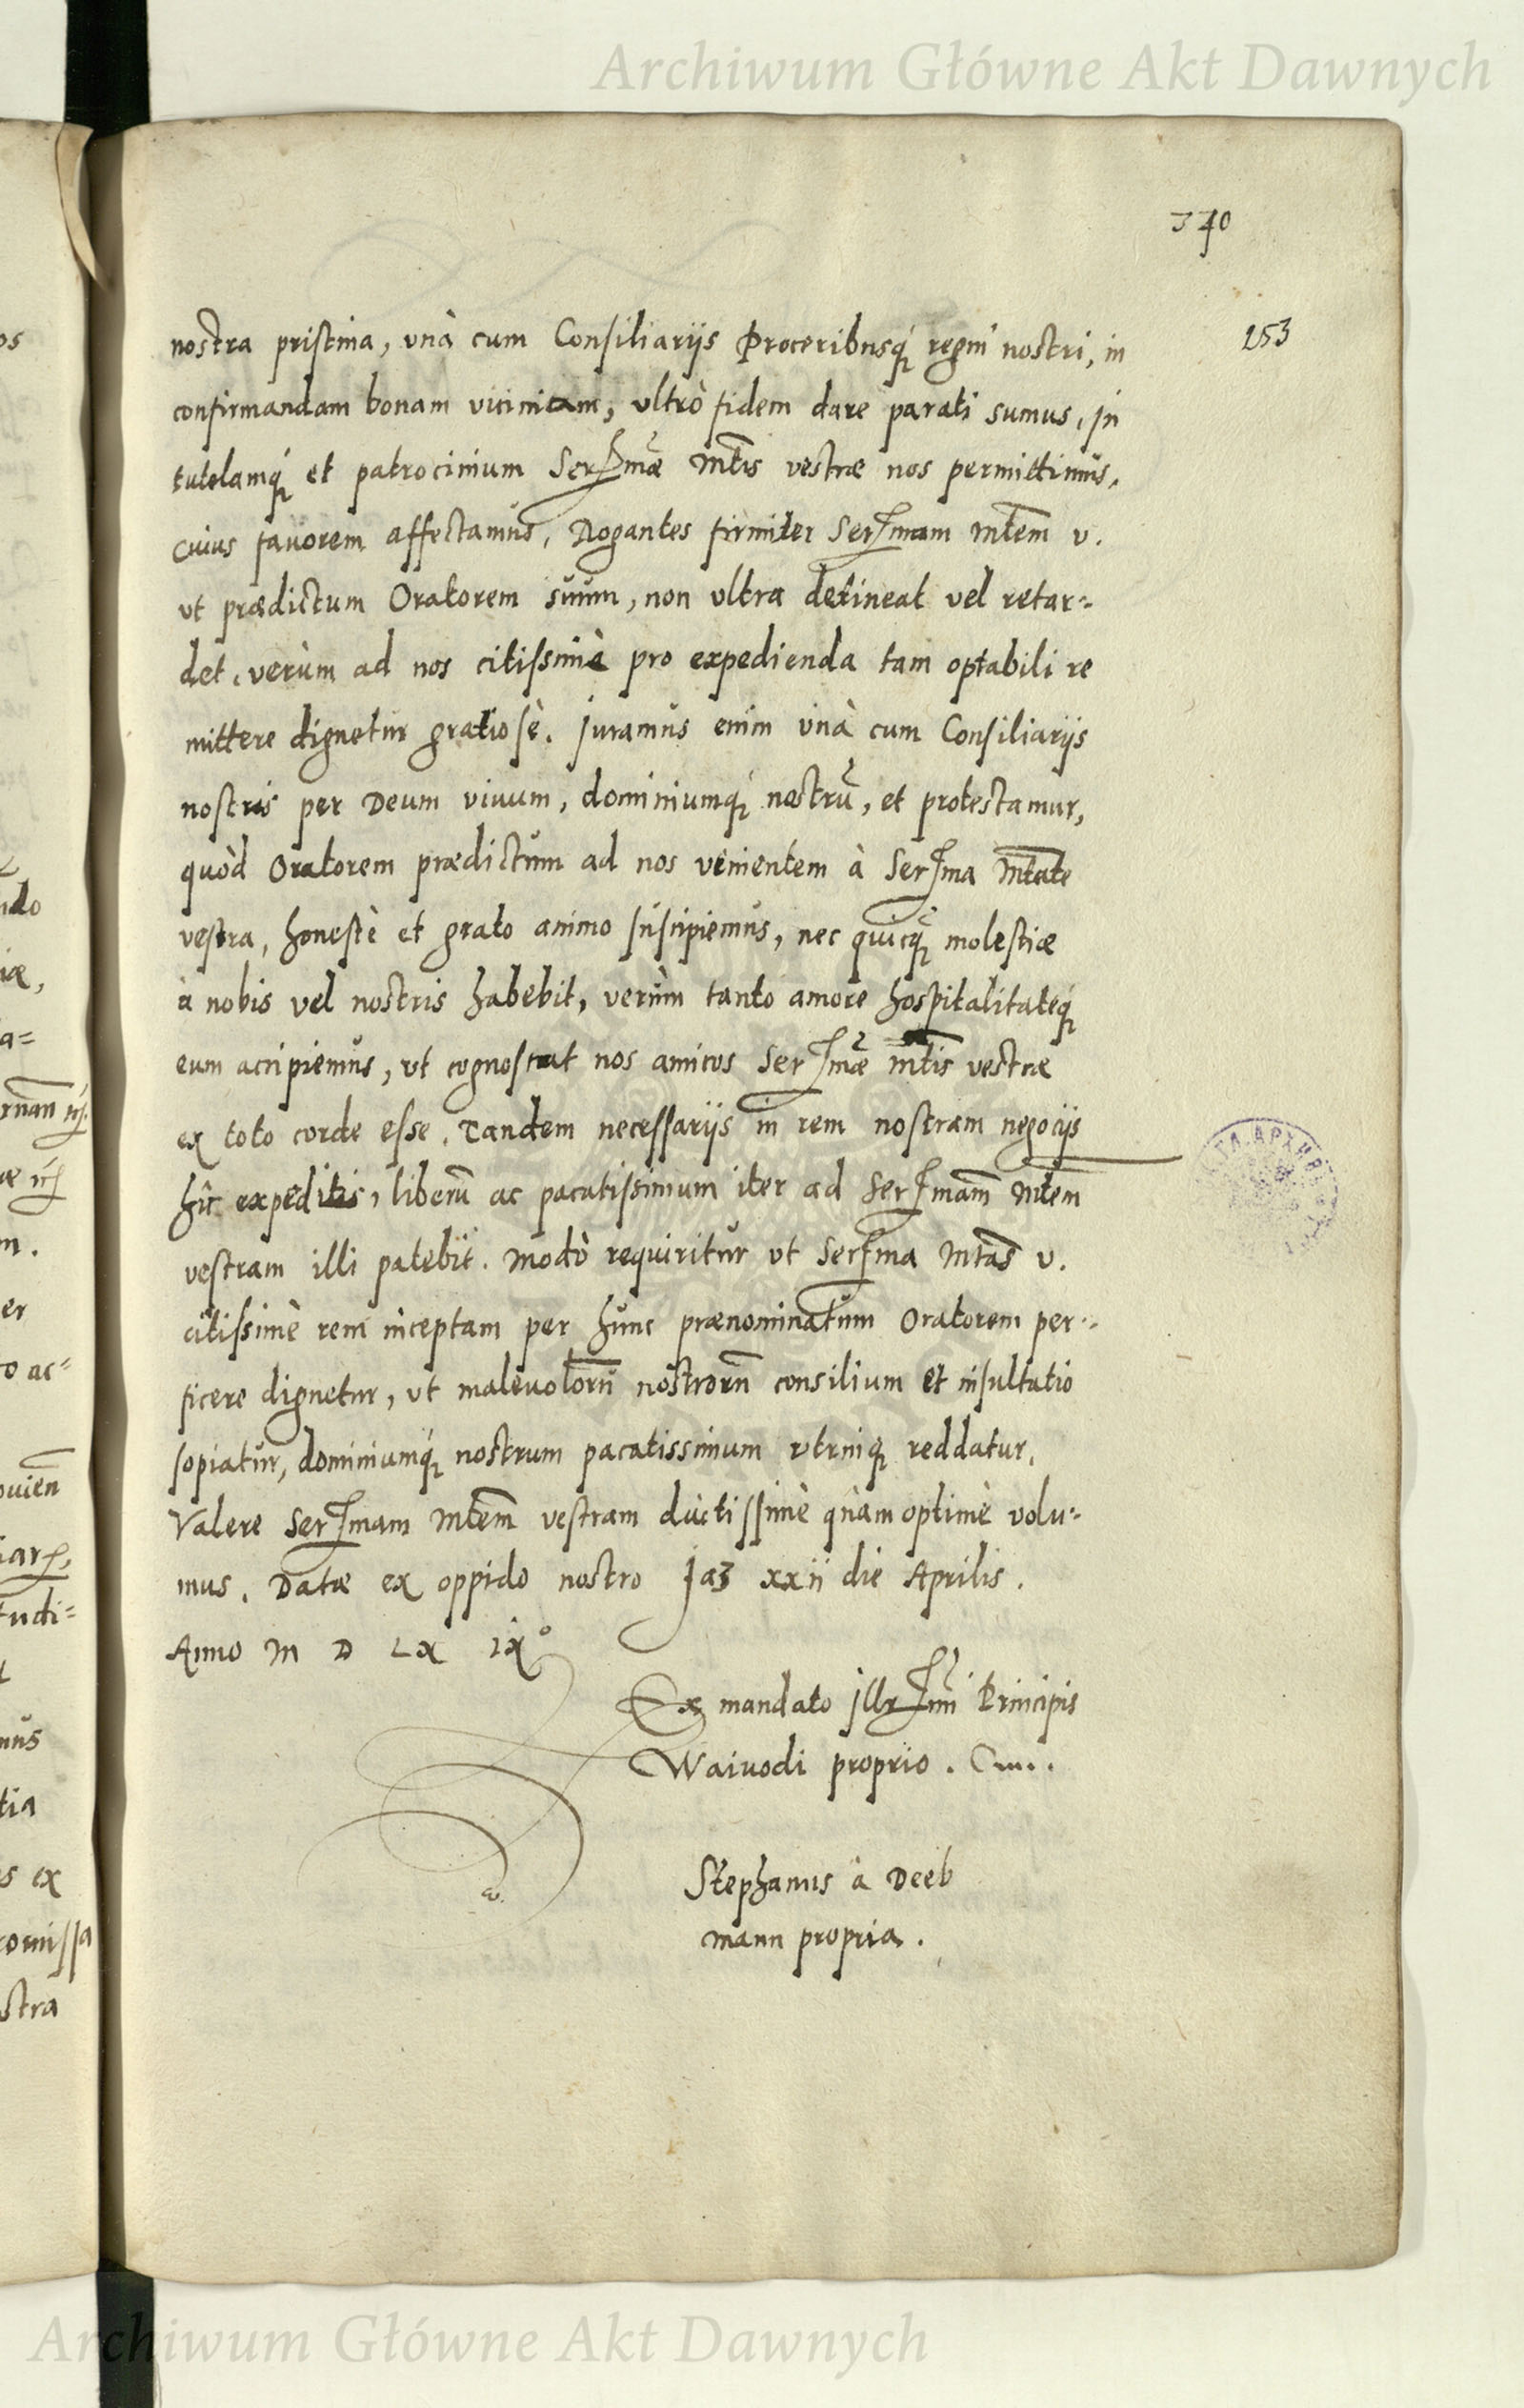 Archiwum Główne Akt Dawnych
370
253
nostra pristina, vnà cum Consiliarijs Proceribusq́ regni nostri, in
confirmandam bonam viciniam, vltrò fidem dare parati sumus, in
tutelamq́ et patrocinium Serꝭmæ Mtis vestræ nos permittimus,
cuius fauorem affectamus, Rogantes firmiter Serꝭmam Mtem v.
vt prædictum Oratorem suum, non vltra detineat vel retar=
det, verùm ad nos citissimè pro expedienda tam optabili re
mittere dignetur gratiosè. Juramus enim vnà cum Consiliarijs
nostris per Deum viuum, dominiumq́ nostrũ, et protestamur,
quòd Oratorem prædictum ad nos venientem à Serꝭma Mtate
vestra, honestè et grato animo suscipiemus, nec quicq̃ molestiæ
à nobis vel nostris habebit, verùm tanto amore hospitalitateq́
eum accipiemus, vt cognoscat nos amicos Serꝭmæ Mtis vestræ
ex toto corde esse. Tandem necessarijs in rem nostram negocijs
hîc expeditis, liberũ ac pacatissimum iter ad Serꝭmam Mtem
vestram illi patebit. Modò requiritur vt Serꝭma Mtas v.
citissimè rem inceptam per hunc prænominatum Oratorem per=
ficere dignetur, vt maleuolorũ nostrorũ consilium et insultatio
sopiatur, dominiumq́ nostrum pacatissimum vtrinq́ reddatur.
Valere Serꝭmam Mtem vestram ductissimè quàm optimè volu=
mus. Datæ ex oppido nostro Jaz xxii die Aprilis.
Anno M D LX IX°
Ex mandato Illrꝭmi Principis
Waiuodi proprio.
Stephanus à Deeb
manu propria.
Archiwum Główne Akt Dawnych